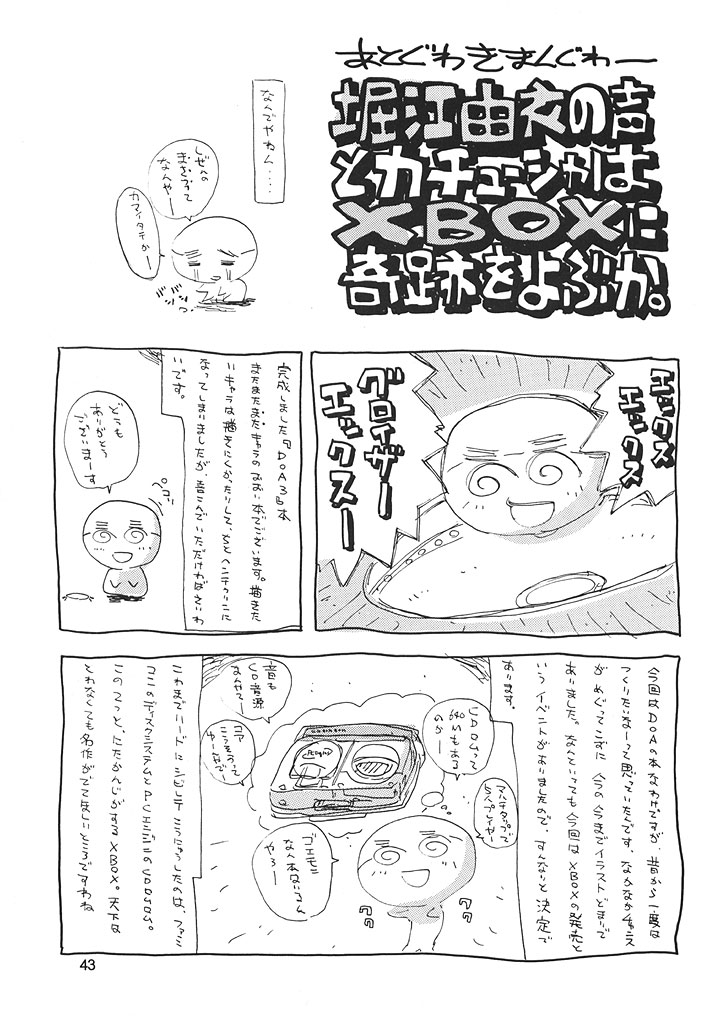 あとぐわきまんぐわー
堀江由衣の声
とカチューシャは
XBOXに
奇跡をよぶか。
なんでやねん・・・・
しぜんの
まきぞって
なんやー
カマイタチかー
エックス
エックス
グロイザー
エックスー
完成しました『DOA3』本
またまたまたキャラのおおい本でございます。描きた
いキャラは描きにくかったりして、ちとヘンテコリンに
なってしまいましたが、喜こんでいただければさいわ
いです。
どうも
ありがとう
ございまーす
ペコッ
今回はDOAの本なわけですが、昔から一度は
つくりたいなーって思っていたんです。なかなかチャンス
がめぐってこずに今の今までイラストどまりで
ありました。なんといっても今回はXBOXの発売と
いうイベントがありましたので、すんなりと決定で
あります。
マルチタップで
5人プレイヤー
CDROMって
540Mもある
のかー
音も
CD音源
なんやてー
コア
こうそうって
ゆーなぶ
ゴエモンに
なん本はいるん
やろー
これまでハードにシビレてこうにゅうしたのは、ファミ
コンのディスクシステムとPCエンジンのCDROM。
このてっと、たたかんじがするXBOX。天下は
とれなくても名作がでてほしいところですわね
43